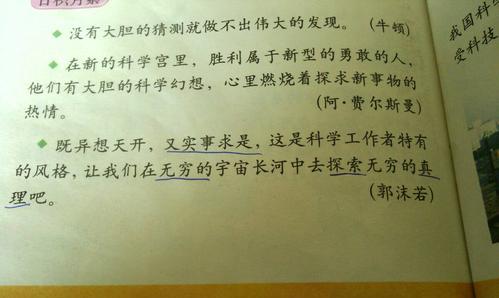 日积月累
没有大胆的猜测就做不出伟大的发现。（牛顿）
在新的科学宫里，胜利属于新型的勇敢的人，
他们有大胆的科学幻想，心里燃烧着探求新事物的
热情。（阿·费尔斯曼）
既异想天开，又实事求是，这是科学工作者特有
的风格，让我们在无穷的宇宙长河中去探索无穷的真
理吧。（郭沫若）
我国科
受科技